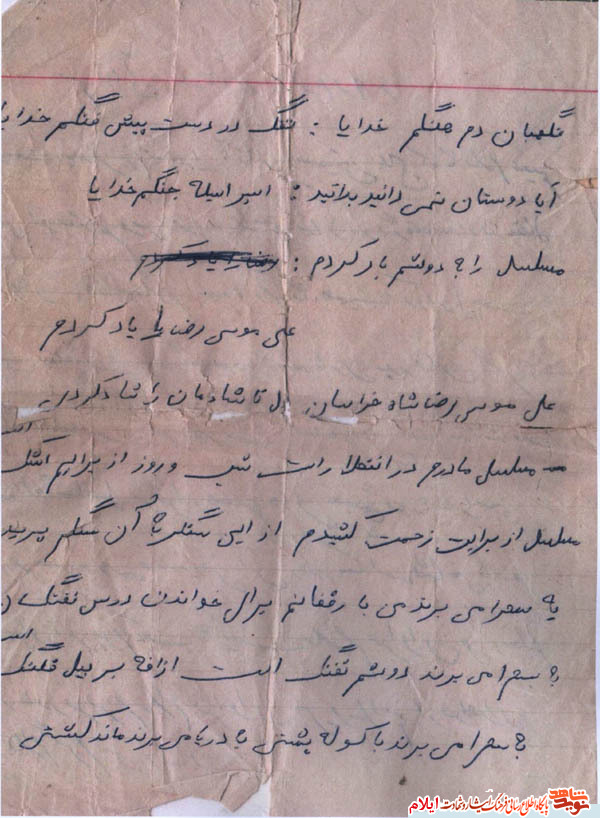 نگهبان دم هنگم خدایا : تفنگ در دست پیش فنگم خدایا
آیا دوستان نمی دانید بدانید : اسیر اسیله جنگم خدایا
مسلسل را به دوشم بار کردم : رضا را یاد کردم
علی موسی رضا را یاد کردم
علی موسی رضا شاه خراسان دل ناشادمان را شاد کردی
مسلسل مادرم در انتظار است شب و روز از برایم اشک است
مسلسل از برایت زحمت کشیدم از این سنگر به آن سنگر پرید
به صحرا می برند می با رفقانم برای خواندن درس تفنگ
به صحرا می برند دوشم تفنگ است ازافه بر بیل فنگ است
به صحرا می برند با کوله پشتی به دریا می برند مانند کشتی
نوید شاهد
پایگاه اطلاع رسانی فرهنگ ایثار و شهادت ایلام